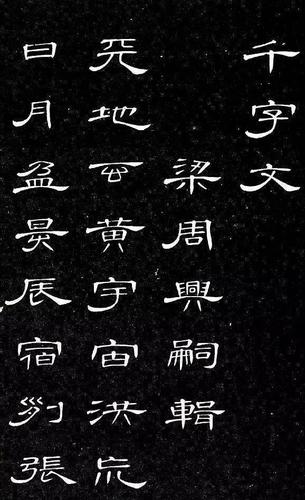 千字文
梁周興嗣輯
天地玄黃宇宙洪荒
日月盈昃辰宿列張